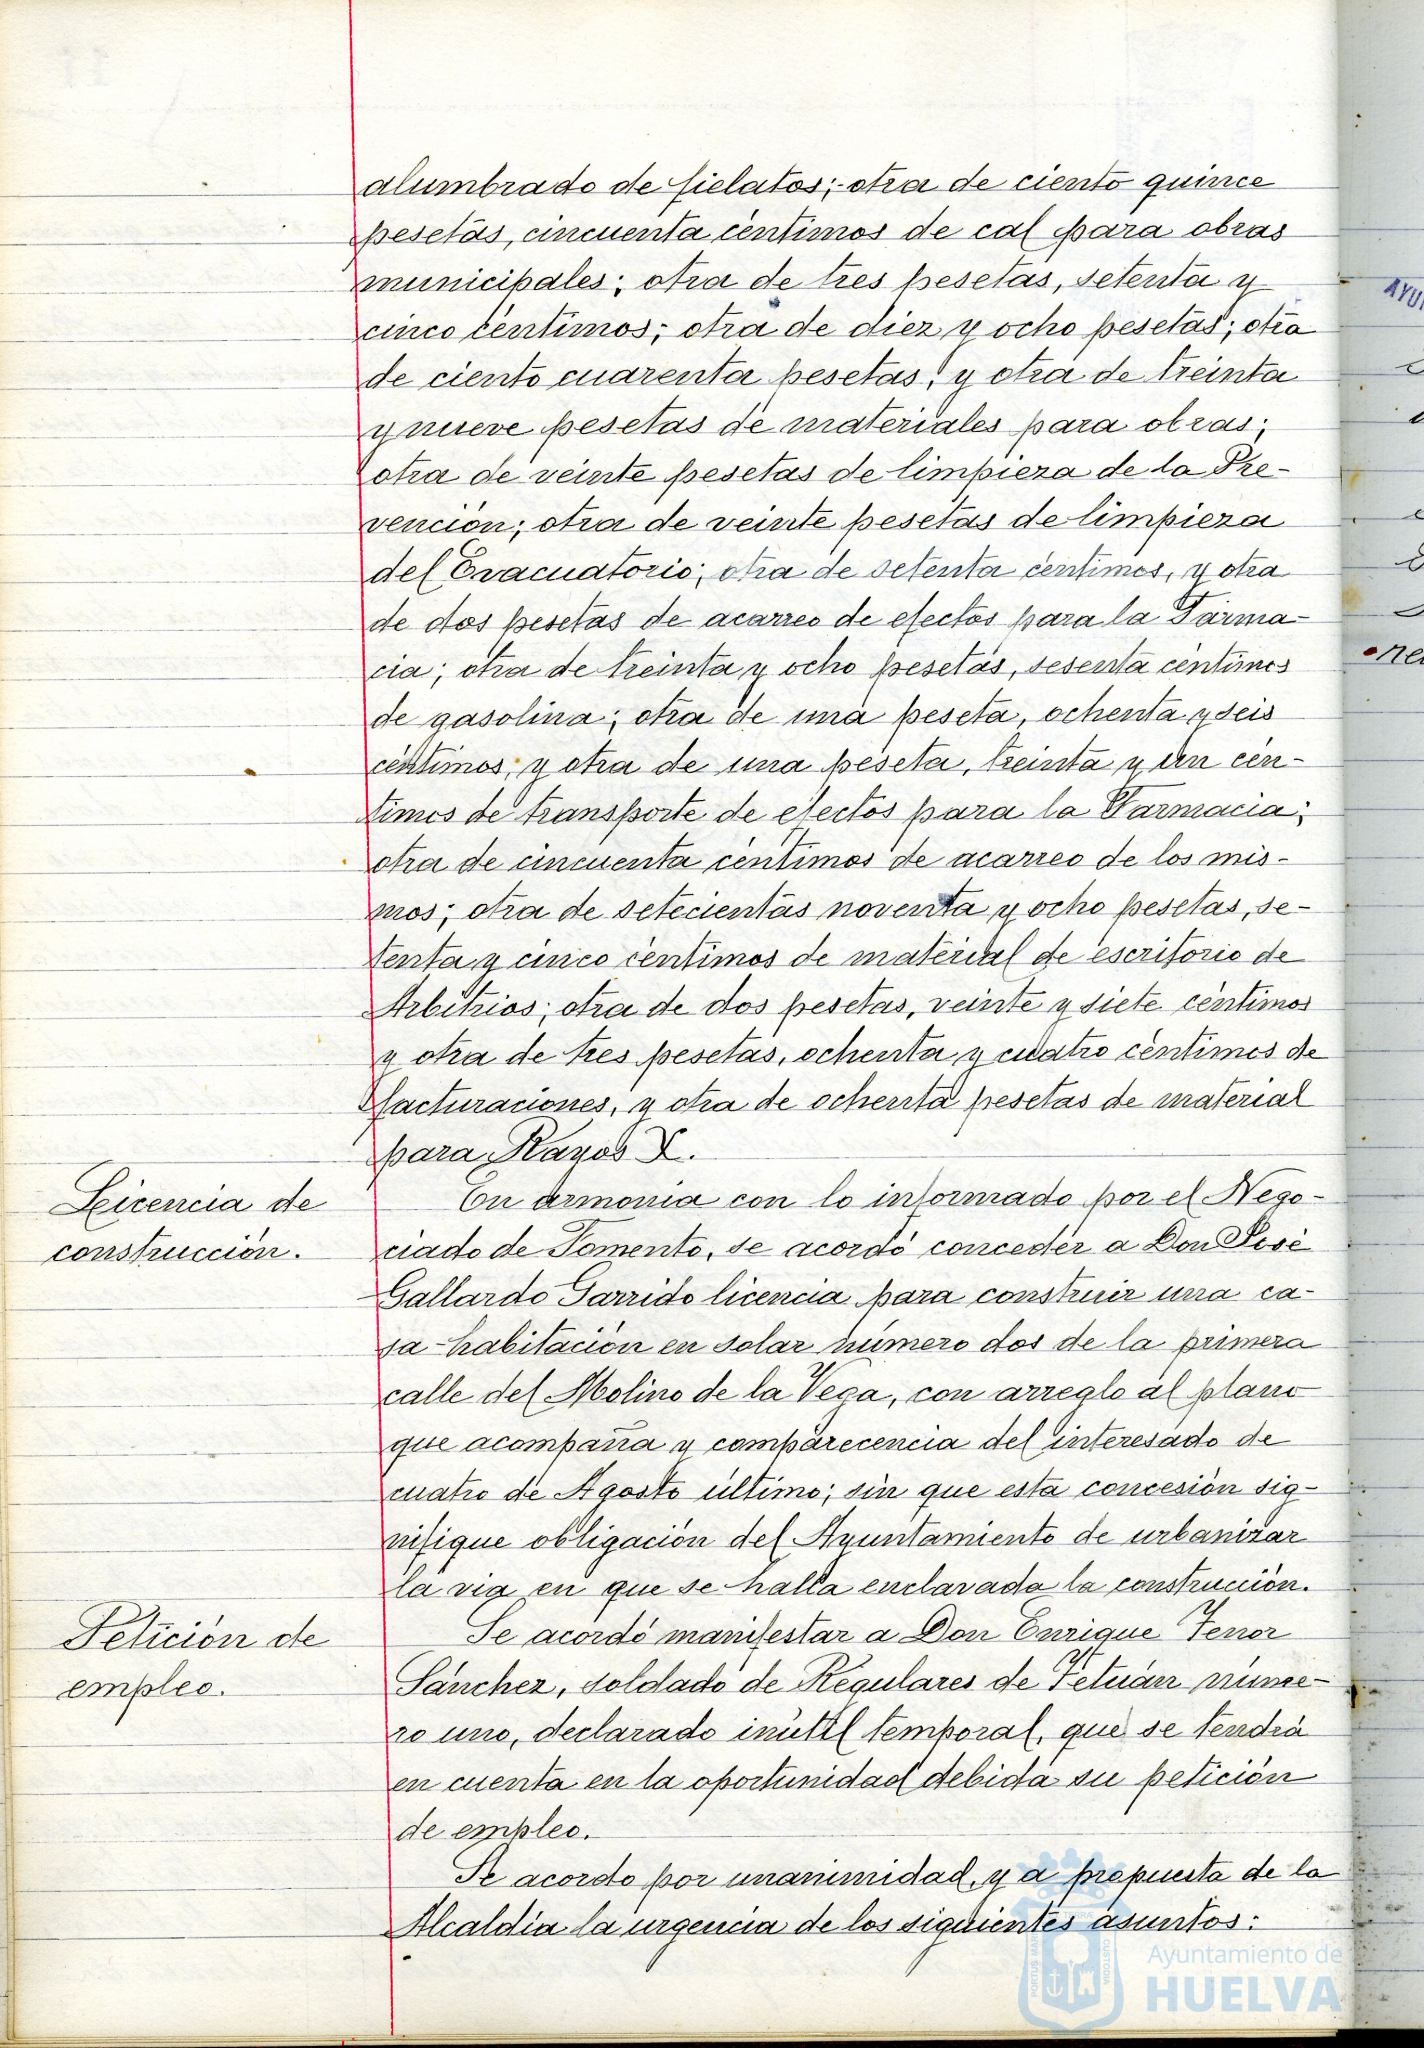 alumbrado de fielatos; otra de ciento quince
pesetas, cincuenta céntimos de cal para obras
municipales; otra de tres pesetas, setenta y
cinco céntimos; otra de diez y ocho pesetas; otra
de ciento cuarenta pesetas; y otra de treinta
y nueve pesetas de materiales para obras;
otra de veinte pesetas de limpieza de la Pre-
vención; otra de veinte pesetas de limpieza
del Evacuatorio; otra de setenta céntimos, y otra
de dos pesetas de acarreo de efectos para la Farma-
cia; otra de treinta y ocho pesetas, sesenta céntimos
de gasolina; otra de una peseta, ochenta y seis
céntimos; y otra de una peseta, treinta y un cén-
timos de transporte de efectos para la Farmacia;
otra de cincuenta céntimos de acarreo de los mis-
mos; otra de setecientas noventa y ocho pesetas, se-
tenta y cinco céntimos de material de escritorio de
Arbitrios; otra de dos pesetas, veinte y siete céntimos
y otra de tres pesetas, ochenta y cuatro céntimos de
facturaciones, y otra de ochenta pesetas de material
para Rayos X.
Licencia de
construcción.
En armonía con lo informado por el Nego-
ciado de Fomento, se acordó conceder a Don José
Gallardo Garrido licencia para construir una ca-
sa-habitación en solar número dos de la primera
calle del Molino de la Vega, con arreglo al plano
que acompaña y comparecencia del interesado de
cuatro de Agosto último; sin que esta concesión sig-
nifique obligación del Ayuntamiento de urbanizar
la vía en que se halla enclavada la construcción.
Petición de
empleo.
Se acordó manifestar a Don Enrique Tenor
Sánchez, soldado de Regulares de Tetuán núme-
ro uno, declarado inútil temporal, que se tendrá
en cuenta en la oportunidad debida su petición
de empleo.
Se acordo por unanimidad, y a propuesta de la
Alcaldía la urgencia de los siguientes asuntos:
Ayuntamiento de
HUELVA